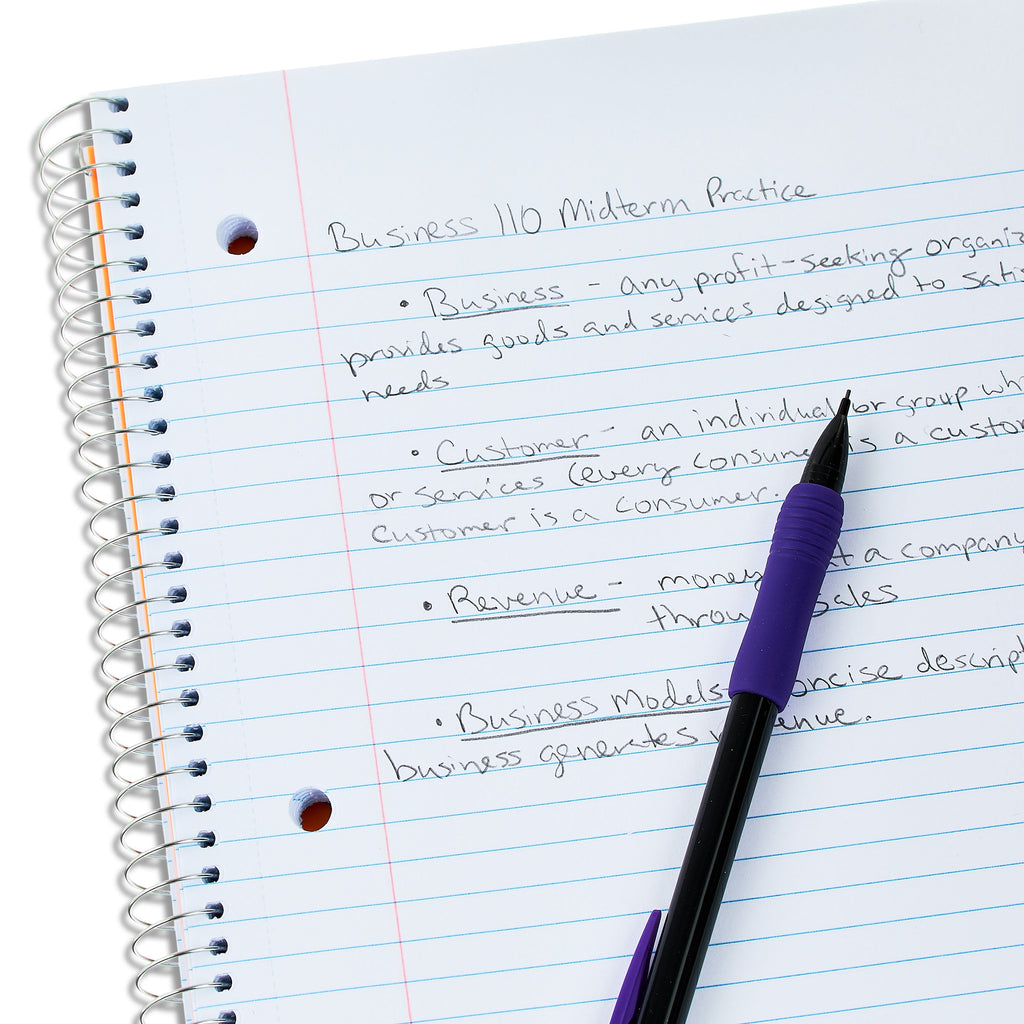 Business 110 Midterm Practice
• Business - any profit-seeking
provides goods and services designed to
needs
• Customer - an individual or group
or services (every is a
customer is a consumer.
• Revenue - money a company
sales
• Business Models - descript
business generates